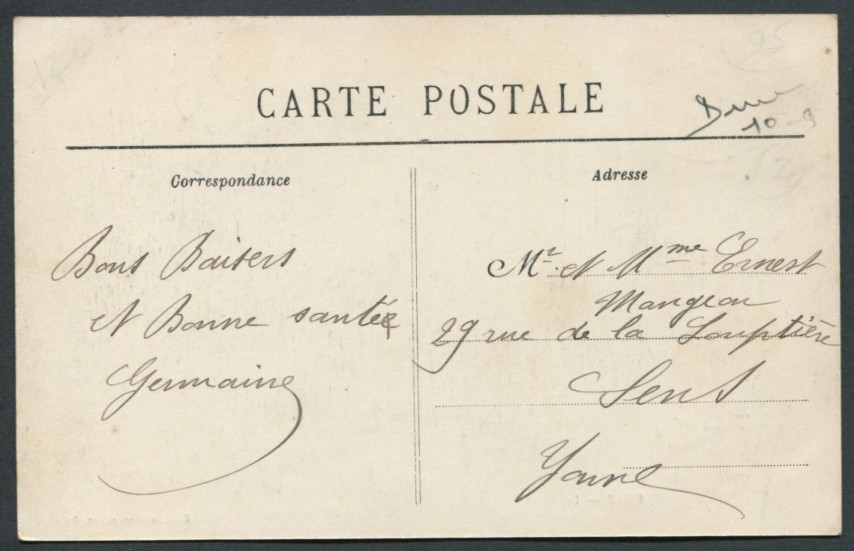 CARTE POSTALE
10-9
Correspondance
Bons Baisers
et Bonne santée
Germaine
Adresse
Mr. et Mme Ernest
Mangeon
29 rue de la Louptière
Sens
Yonne